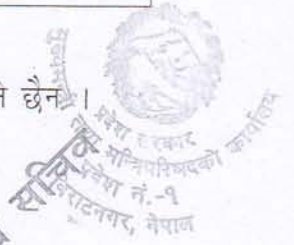 छैन ।
प्रदेश सरकार
मन्त्रिपरिषद्को कार्यालय
प्रदेश नं.-१
विराटनगर, नेपाल
सचिव